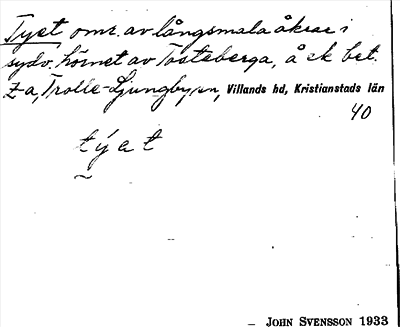 Tyet omr. av långsmala åkrar i
sydv. hörnet av Tosteberga, å ek bet.
Za, Trolle-Ljungby sn, Villands hd, Kristianstads län
40
týet
JOHN SVENSSON 1933